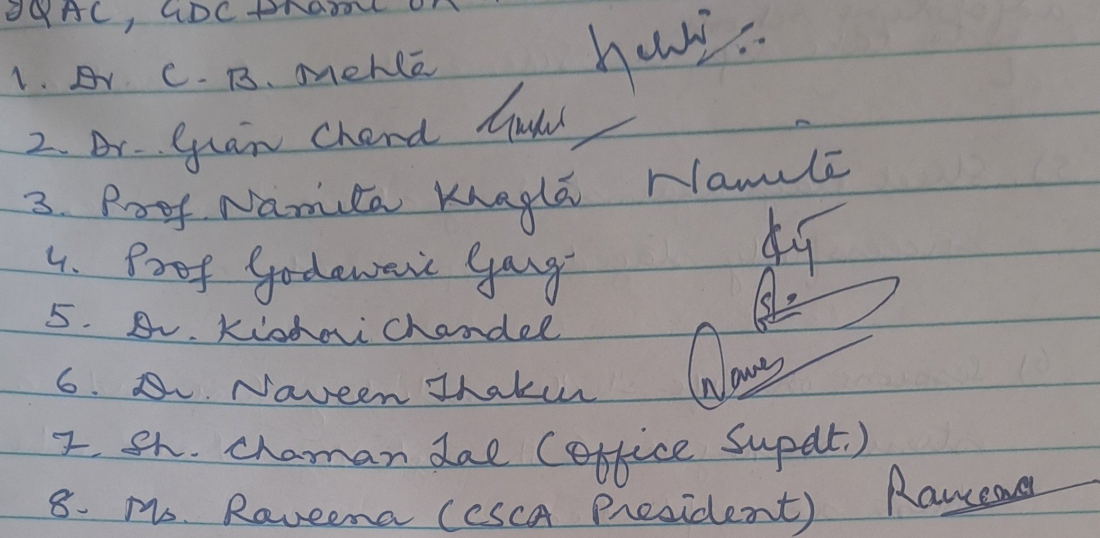 IQAC, GDC Dhami on
1. Dr. C. B. Mehta
2. Dr. Gian Chand
3. Prof. Namita Khagta Namita
4. Prof Godawari Garg
5. Dr. Kishori Chandel
6. Dr. Naveen Thakur Naveen
7. Sh. Chaman Lal (Office Supdt.)
8. Ms. Raveena (CSCA President) Raveena